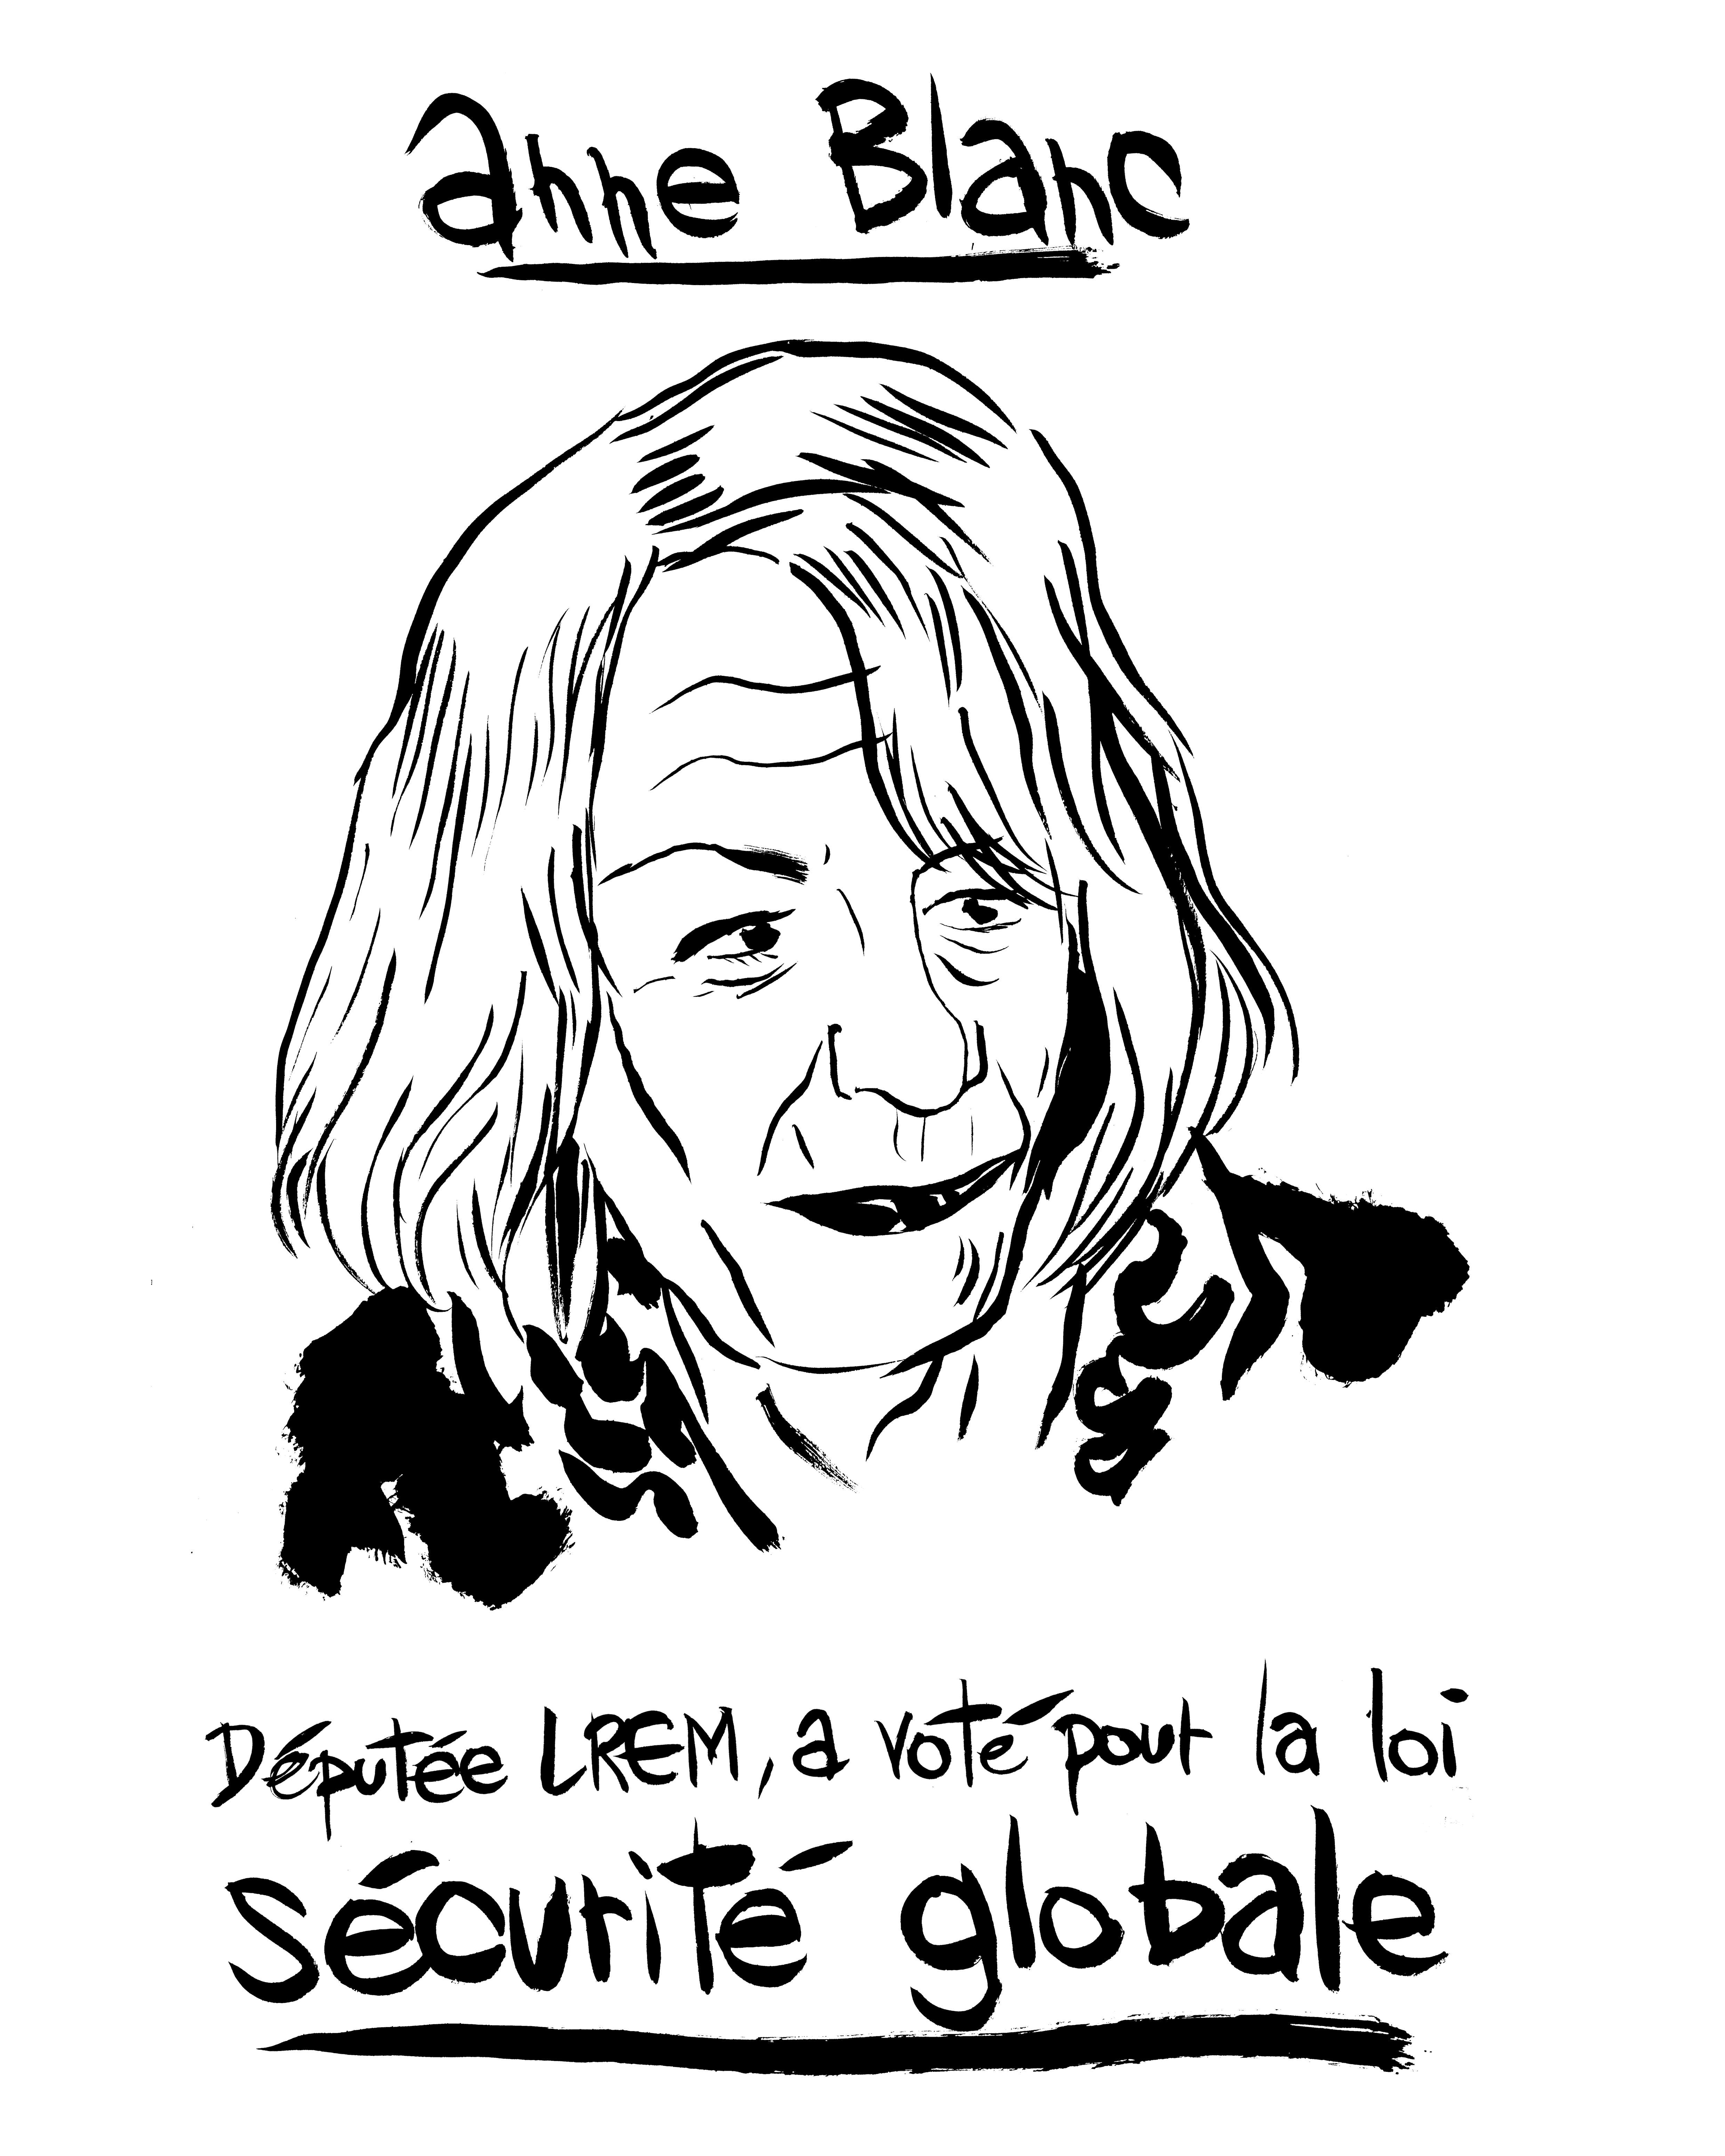 Anne Blanc
Députée LREM, a voté pour la loi
sécurité globale